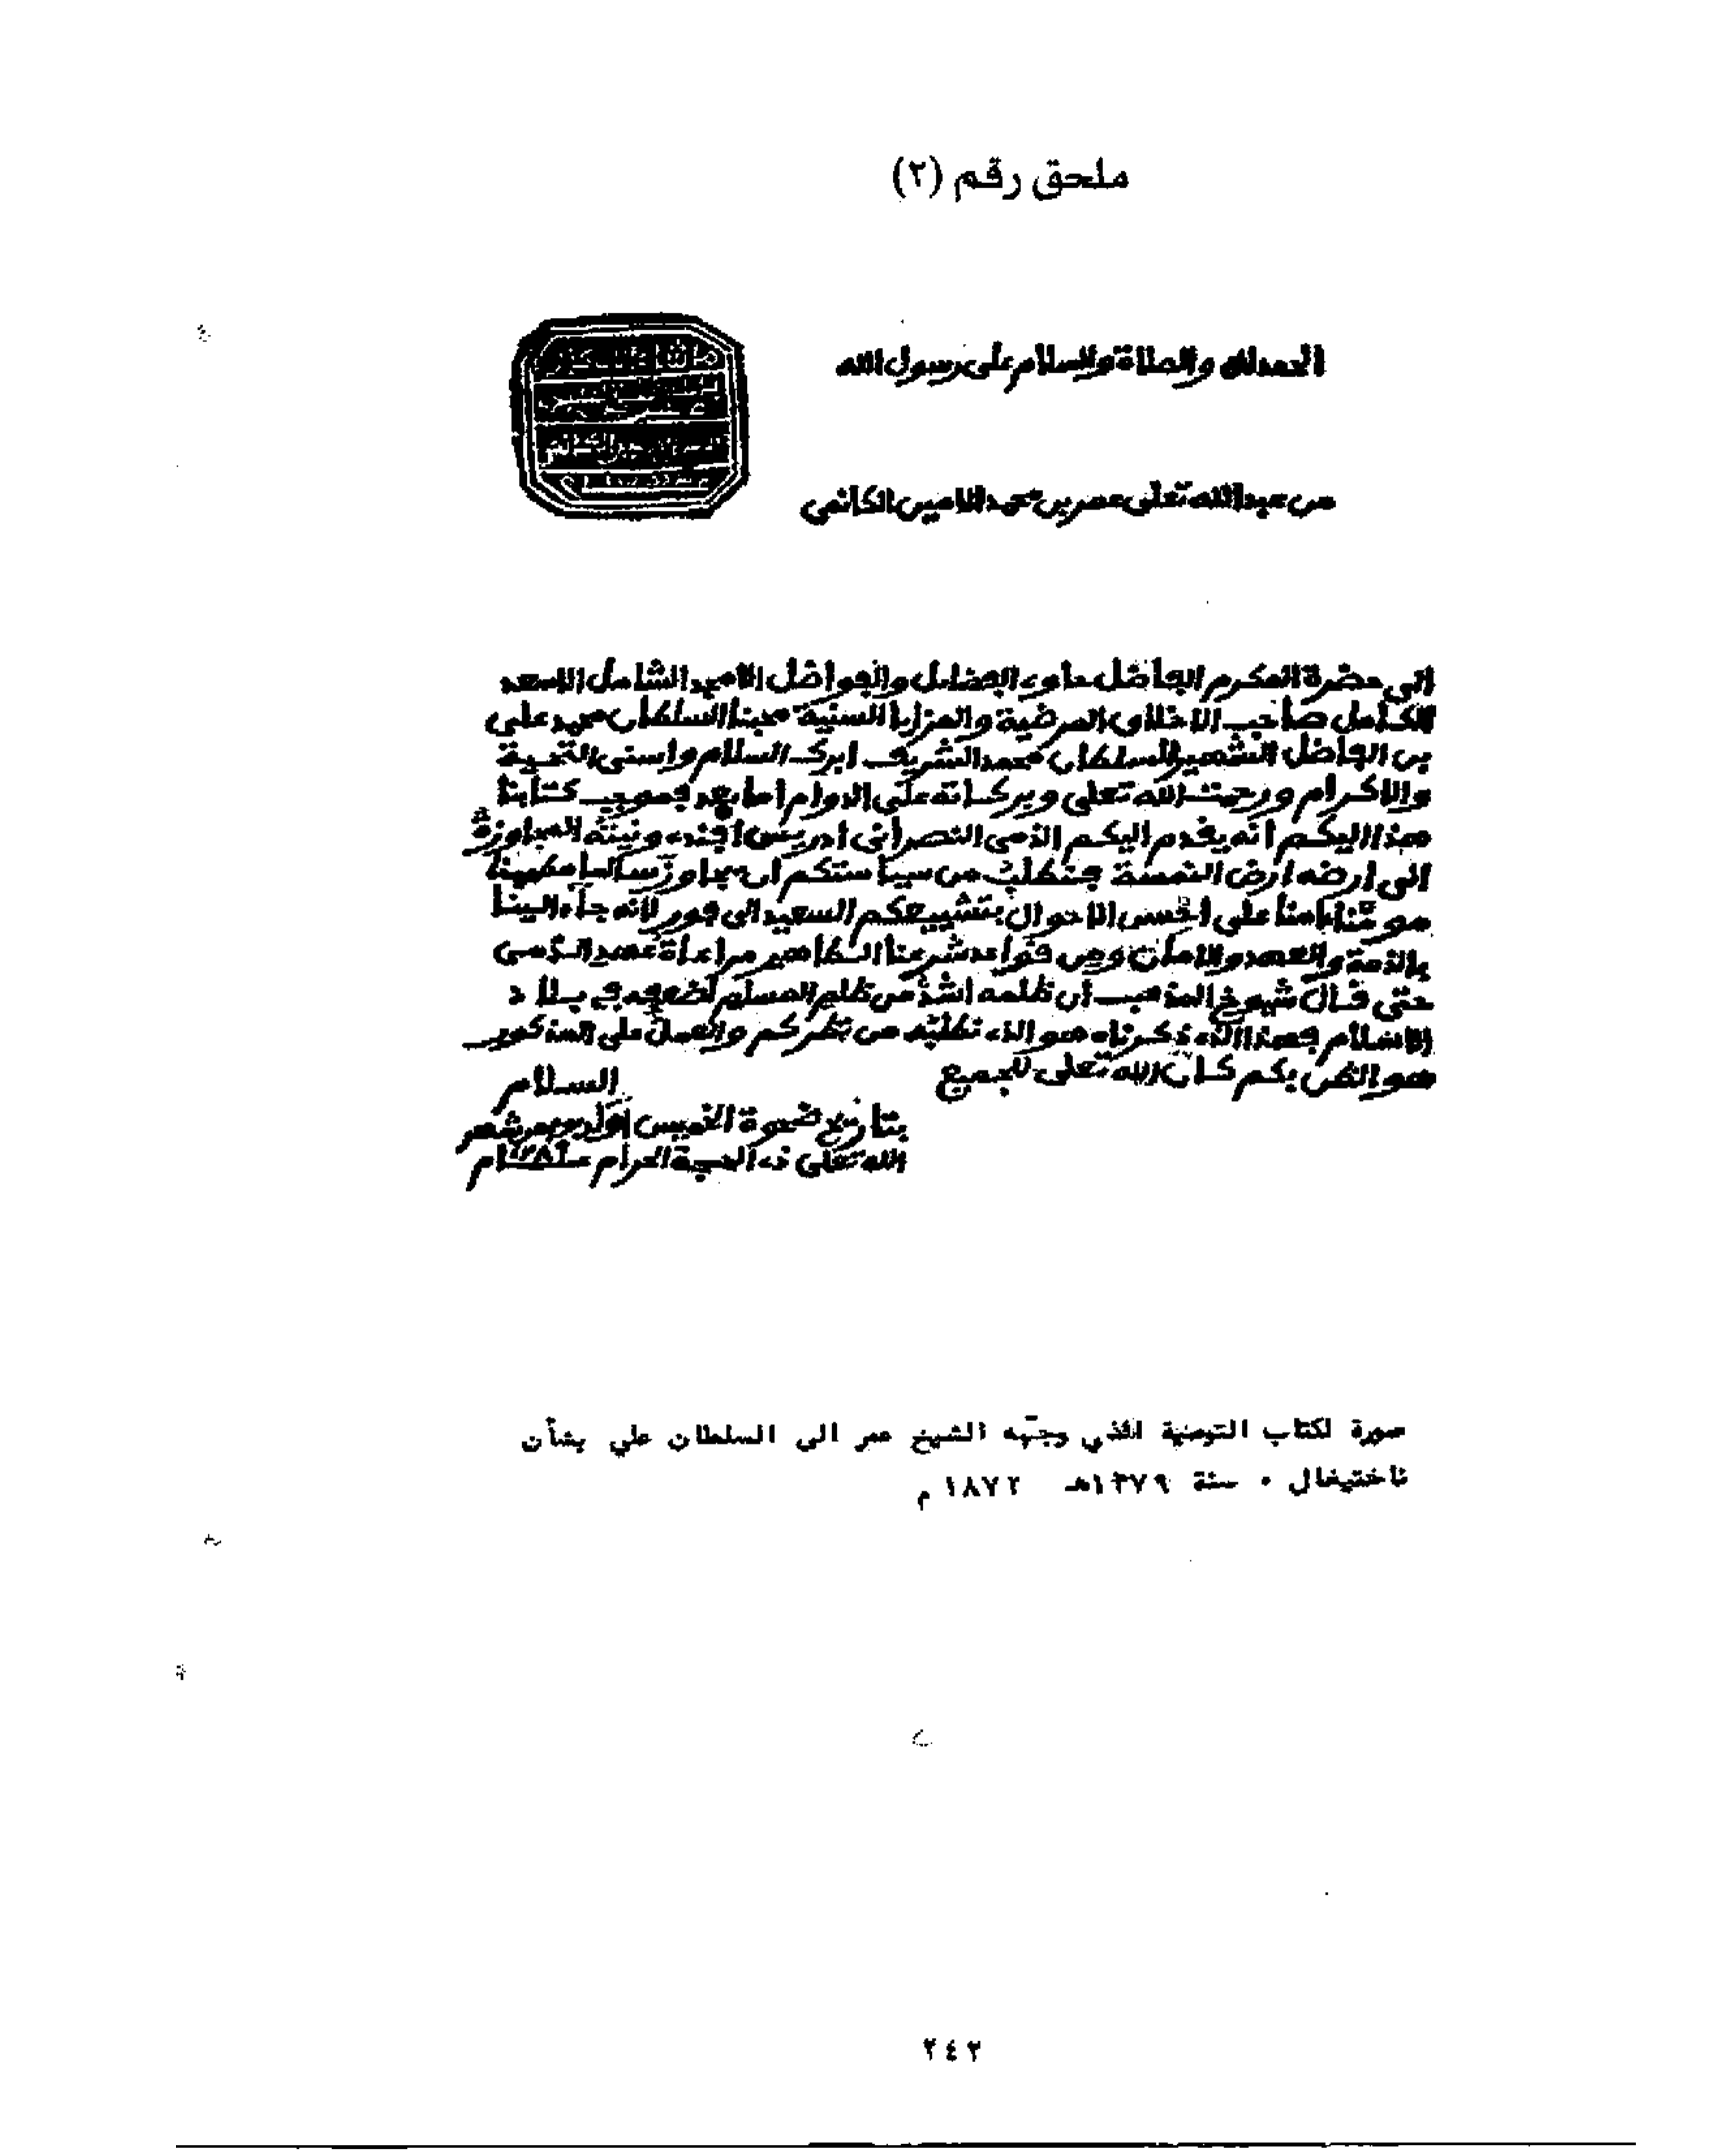 ملحق رقم (٢)
الحمد لله والصلاة والسلام على رسول الله
من عبد الله تعلى عمر بن محمد الامين الكانمي
الى حضرة المكرم الفاضل حاوي الفضايل والفواضل الامجد الشامل الاسعد
الكامل صاحب الاخلاق المرضية والمزايا السنية محبنا السلطان محمد علي
بن الفاضل الشهير السلطان محمد الشريف ابرك السلام واسنى التحية
والاكرام ورحمت الله تعلى وبركاته على الدوام اما بعد فموجب كتابنا
هذا اليكم انه يقدم اليكم الذمي النصراني ادريس افندي ونيته المجاوزة
الى ارضه ارض النمسة فنطلب من سياستكم ان يجاوز سالما مطمينا
على احسن الاحوال بتشييعكم السعيد الى فور لانه جاء الينا
بالذمة والعهد والامان ومن قواعد شرعنا الطاهر مراعاة عهد الذمي
حتى قال شيوخ المذهب ان ظلمه اشد من ظلم المسلم لضعفه في بلاد
الاسلام فهذا الذي ذكرناه هو الذي نطلبه من نظركم والعمل على المذكور
هو الظن بكم كان الله تعلى للجميع السلام
بتاريخ ضحوة الخميس اول يوم من شهر
الله تعلى ذي الحجة الحرام
صورة لكتاب التوصية الذي وجّهه الشيخ عمر الى السلطان علي بشأن
ناختيغال ٠ سنة ١٢٧٩هـ ١٨٧٢ م
٢٤٢